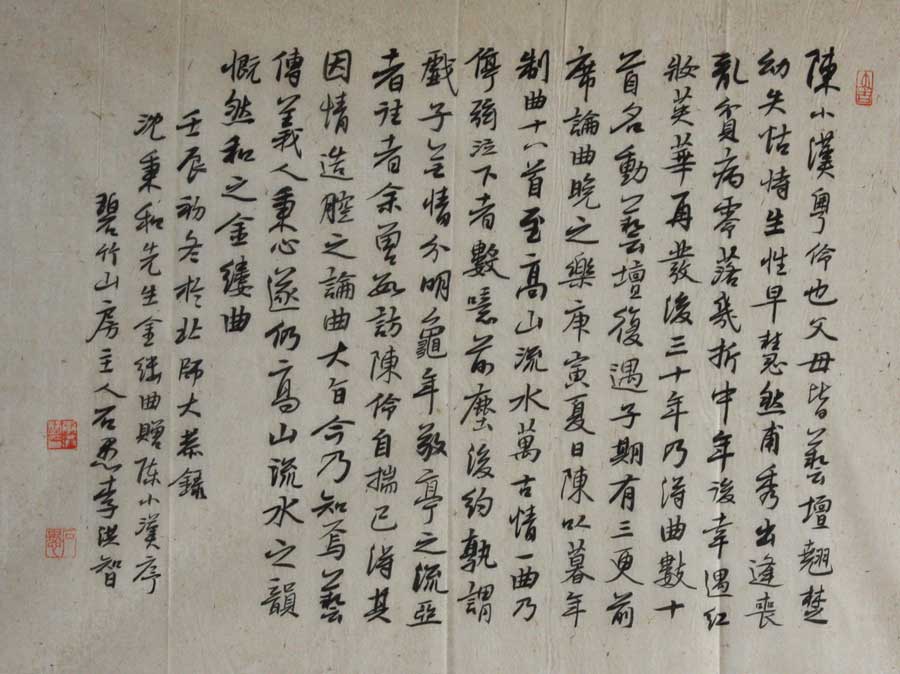 陳小漢粵伶也父母皆藝壇翹楚
幼失怙恃生性早慧然甫秀出逢喪
亂貧病零落幾折中年後幸遇紅
妝英華再發後三十年乃得曲數十
首名動藝壇復遇子期有三更前
席論曲晚之樂庚寅夏日陳以暮年
制曲十八首至高山流水萬古情一曲乃
停弦泣下者數噫前塵後約孰謂
戲子無情分明龜年敬亭之流亞
者往者余曾數訪陳伶自揣已得其
因情造腔之論曲大旨今乃知焉藝
傳義人秉心遂仍高山流水之韻
慨然和之金縷曲
壬辰初冬於北師大恭錄
沈秉和先生金縷曲贈陳小漢序
碧竹山房主人石愚李洪智